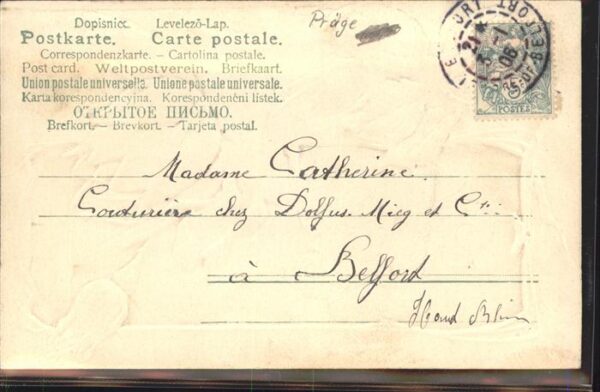 Dopisnice. Levelező-Lap.
Postkarte. Carte postale.
Correspondenzkarte. – Cartolina postale.
Post card. Weltpostverein. Briefkaart.
Union postale universelle. Unione postale universale.
Karta korespondencyjna. Korespondenční lístek.
ОТКРЫТОЕ ПИСЬМО.
Brefkort. – Brevkort. – Tarjeta postal.
Präge
BELFORT
POSTES
Madame Catherine
Couturière chez Dolfus. Mieg et Cie
à Belfort
Haut Rhin